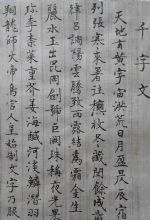 千字文
天地玄黃宇宙洪荒日月盈昃辰宿
列張寒來暑往秋收冬藏閏餘成歲
律呂調陽雲騰致雨露結為霜金生
麗水玉出崑岡劍號巨闕珠稱夜光果
珍李柰菜重芥薑海鹹河淡鱗潛羽
翔龍師火帝鳥官人皇始制文字乃服